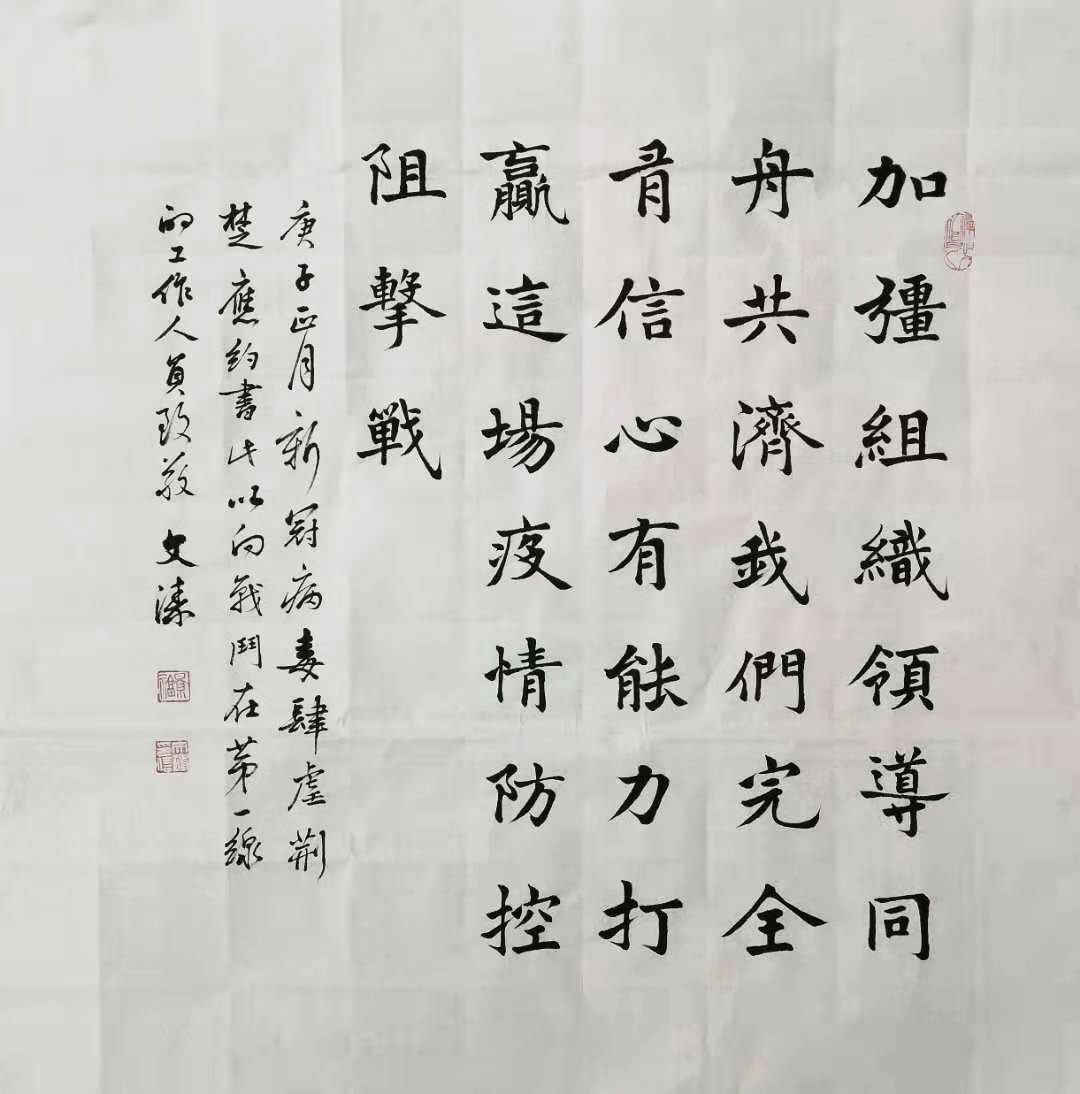 加彊組織領導同
舟共濟我們完全
有信心有能力打
贏這場疫情防控
阻擊戰
庚子正月新冠病毒肆虐荆
楚應約書此以向戰鬥在第一線
的工作人員致敬 文溱